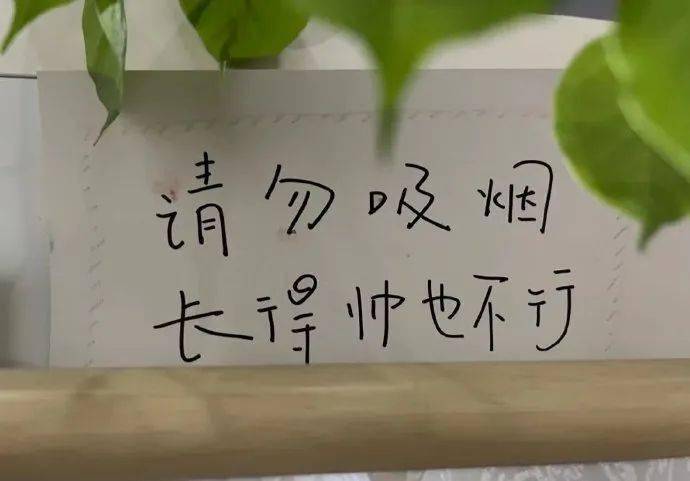 请勿吸烟
长得帅也不行